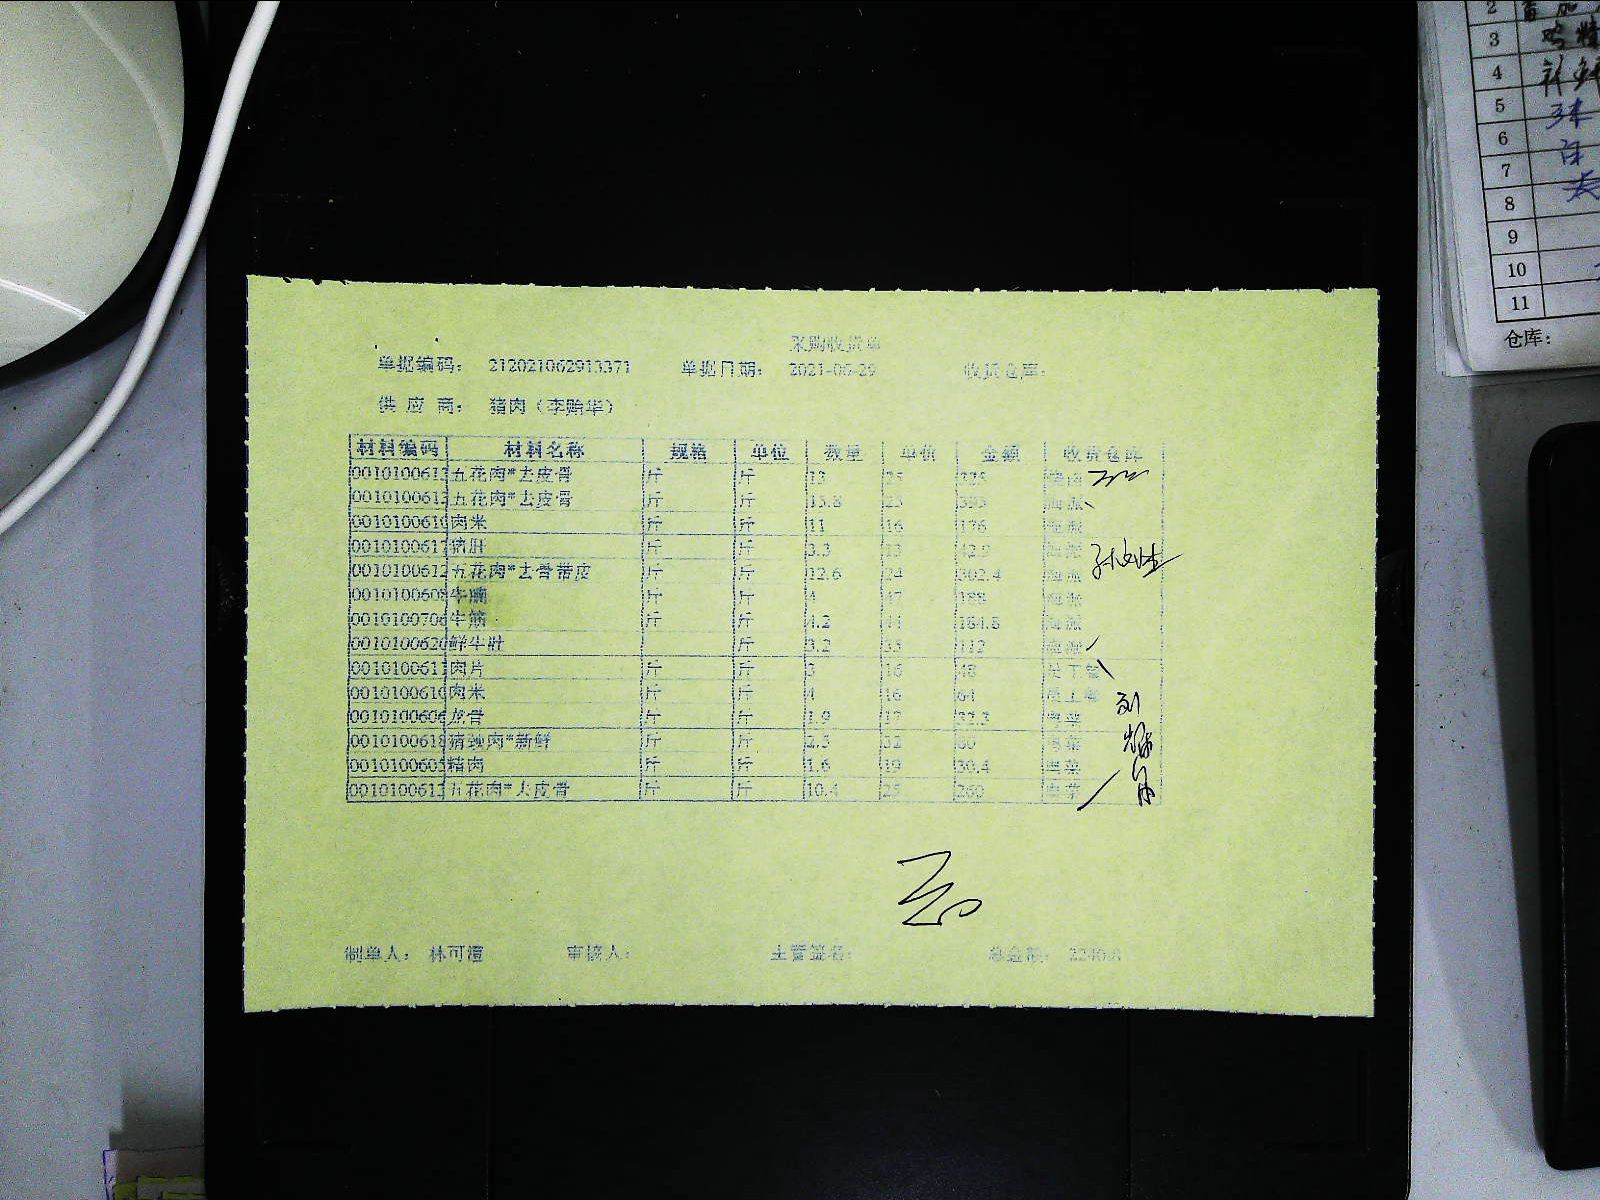 采购收货单
单据编码： 212021062913371 单据日期： 2021-06-29 收货仓库：
供 应 商： 猪肉（李贻华）
材料编码 材料名称 规格 单位 数量 单价 金额 收货仓库
0010100612 五花肉*去皮骨 斤 斤 13 25 325
0010100612 五花肉*去皮骨 斤 斤 15.8 25 395 海派
0010100610 肉米 斤 斤 11 16 176 海派
0010100617 猪肝 斤 斤 3.3 13 42.9 海派
0010100612 五花肉*去骨带皮 斤 斤 12.6 24 302.4 海派
0010100608 牛腩 斤 斤 4 47 188 海派
0010100706 牛筋 斤 斤 4.2 44 184.8 海派
0010100620 鲜牛肚 斤 3.2 35 112 海派
0010100611 肉片 斤 斤 3 16 48 员工餐
0010100610 肉米 斤 斤 4 16 64 员工餐
0010100606 龙骨 斤 斤 1.9 17 32.3 粤菜
0010100618 猪颈肉*新鲜 斤 斤 2.5 32 80 粤菜
0010100605 精肉 斤 斤 1.6 19 30.4 粤菜
0010100612 五花肉*去皮骨 斤 斤 10.4 25 260 粤菜
制单人： 林可澶 审核人： 主管签名： 总金额： 2240.8
2
3
4
5
6
7
8
9
10
11
仓库：